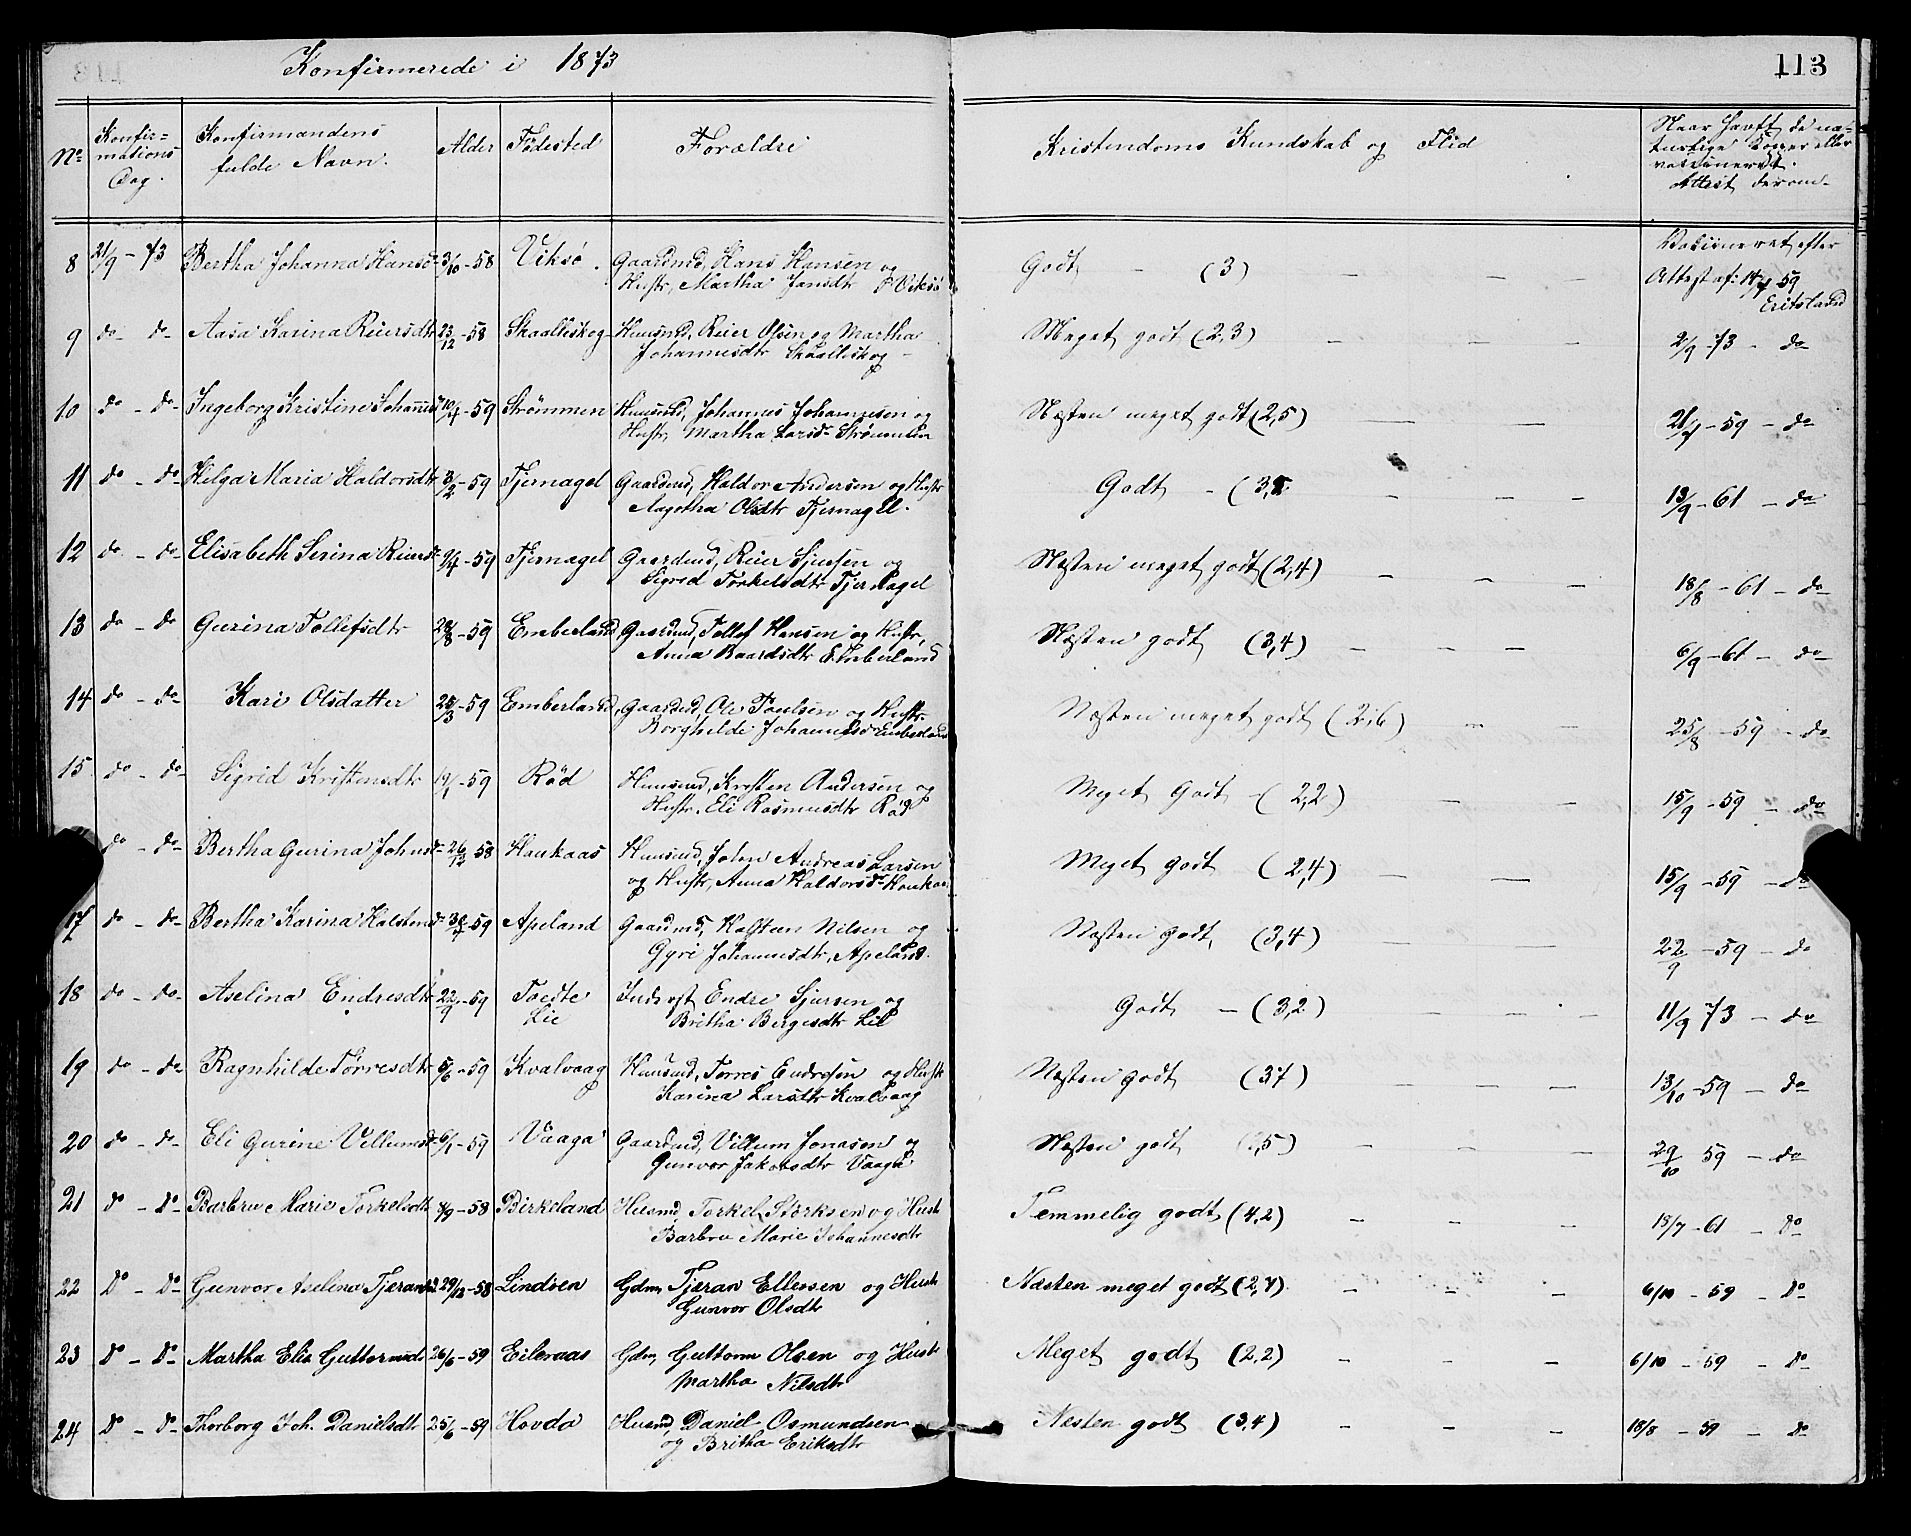 Konfirmerede i 1873
113
No
Konfir=
mations
Dag.
Konfirmandens
fulde Navn.
Alder
Fødested
Forældre
Kristendoms Kundskab og Flid
Naar havft de na=
turlige Kopper eller
vakcineret.
Attest derom.
8 21/9 - 73 Bertha Johanna Hansd 3/10-58 Viksø. Gaardmd, Hans Hansen og Godt - (3) - - - Vakcineret efter
Hustr, Martha Jansdtr Viksø Attest af: 59
Eritsland
9 do - do Aasa Karina Reiersdtr 23/12-58 Skaalliskog Huusmd, Reier Olsen og Martha Meget godt (2,3) - - - 2/9-73 - do
Johannesdtr Skaalliskog -
10 do - do Ingeborg Kristine Johannes 59 Strømmen Huusmd, Johannes Johannesen og Næsten meget godt (2,5) - - - 59 - do
Hustr, Martha Larsd Strømmen
11 do - do Helga Maria Haldorsdtr 3/2-59 Tjernagel Gaardmd, Haldor Andersen og Hustr Godt - - - - 13/9-61 - do
Aagotha Olsdtr Tjernagel.
12 do - do Elisabeth Serina Reiersd 9/4-59 Tjernagel Gaardmd, Reier Sjursen og Næsten meget godt (2,4) - - - 18/8-61 - do
Sigrid Torkelsdtr Tjernagel
13 do - do Gurina Tollefsdtr 59 Emberland Gaardmd, Tollef Hansen og Hustr, Næsten godt (3,4) - - - 6/9-61 - do
Anna Baardsdtr Emberland
14 do - do Kari Olsdatter 25/3-59 Emberland Gaardmd, Ole Poulsen og Hustr Næsten meget godt (2,6) - - 25/8-59 - do
Borghilde Johannesd Emberland
15 do - do Sigrid Kristensdtr 59 Rød Huusmd, Kristen Andersen og Meget Godt - (2,2) - - 15/9-59 - do
Hustr. Eli Rasmusdtr Rød
do - do Bertha Gurina Johnsd 26/12 58 Haukaas Huusmd, John Andreas Larsen Meget godt (2,4) - - 15/9-59 - do
og Hustr, Anna Haldorsd Haukaas
17 do - do Bertha Karina Halstensd 59 Apeland Gaardmd, Halsten Nilsen og Næsten Godt, (3,4) - - - 22/9-59 - do
Gyri Johannesdtr, Apeland.
18 do - do Aselina Endresdtr 22/9-59 Tvedte Inderst Endre Sjursen og Godt - (3,2) - - - 11/9 73 - do
Lie Britha Bergesdtr Lie
19 do - do Ragnhilde Tørresdtr 5/6-59 Kvalvaag Huusmd, Tørres Endresen og Hustr Næsten godt (37) - - - 13/10-59 - do
Karina Larsdtr Kvalvaag
20 do - do Eli Gurine Villumsd 6/1-59 Vaaga Gaardmd, Villum Jonasen og Næsten godt - - - 29/10 59 - do
Gunvor Jakobsdtr Vaaga
21 do - do Barbru Marie Torkelsdtr 58 Birkeland Husmd, Torkel Størksen og Hust Temmelig godt (4,2) - - - 18/7-61 - do
Barbru Marie Johannesdtr
22 Do - Do Gunvor Aselina Tjeransd 29/12-58 Lindøen Gdm, Tjeran Ellessen og Hust Næsten meget godt - - - 6/10 - 59 - Do
Gunvor Olsdtr
23 Do - Do Martha Elia Guttormsd 26/6-59 Eileraas Gdm, Guttorm Olsen og Hust Meget godt (2,2) - - - 6/10 - 59 - Do
Martha Nilsdtr
24 Do - Do Thorborg Joh. Danielsdtr 25/6-59 Hovda Husmd, Daniel Osmundsen Næsten godt (3,4) - - - 18/8 - 59 - Do
og Britha Eriksdtr